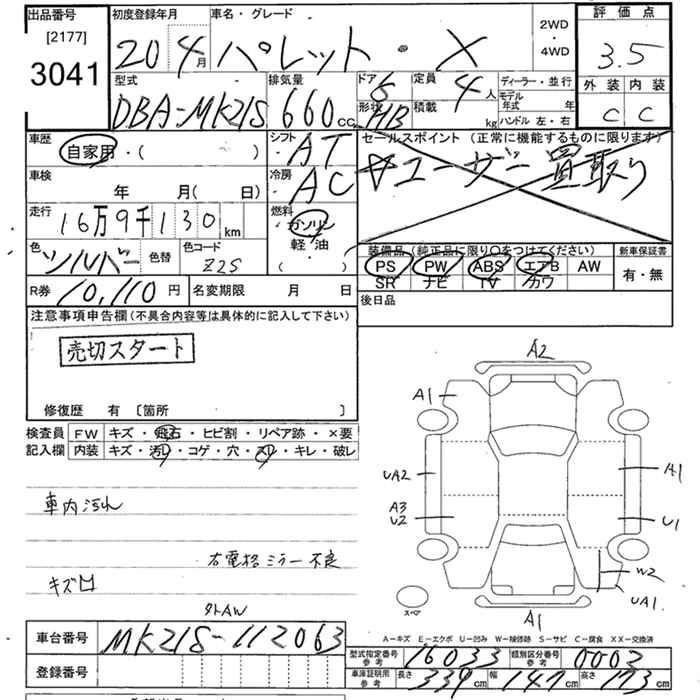 出品番号
[2177]
3041
初度登録年月
20年4月
車名・グレード
パレット・X
2WD・4WD
評価点
3.5
外装 内装
C C
型式
DBA-MK21S
排気量
660cc
ドア 5
形状 HB
定員 4人
積載 kg
ディーラー・並行
モデル年式 年
ハンドル 左・右
車歴
自家用・( )
シフト AT
車検
年 月( 日)
冷房 AC
セールスポイント (正常に機能するものに限ります)
ユーザー買取り
走行
16万9千130km
燃料
ガソリン
軽・油
( )
色
シルバー
色替
色コード
Z2S
装備品 (純正品に限り○をつけてください)
PS PW ABS エアB AW
SR ナビ TV カワ
新車保証書
有・無
R券 10,110円
名変期限 月 日
後日品
注意事項申告欄 (不具合内容等は具体的に記入して下さい)
売切スタート
修復歴 有 〔箇所 〕
検査員記入欄
FW キズ・飛石・ヒビ割・リペア跡・×要
内装 キズ・汚レ・コゲ・穴・スレ・キレ・破レ
車内汚れ
右電格ミラー不良
キズ凹
外AW
A2
A1
UA2
A3
U2
A1
U1
W2
UA1
A1
スペア
A-キズ E-エクボ U-凹み W-補修跡 S-サビ C-腐食 XX-交換済
車台番号 MK21S-112063
登録番号
型式指定番号 参考 16033
類別区分番号 参考 0003
車庫証明用 参考 長さ 339cm 幅 147cm 高さ 173cm